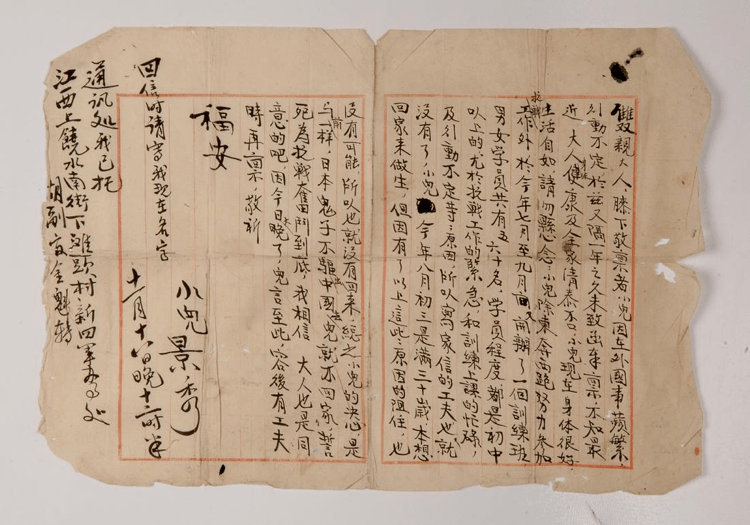 雙親大人：膝下敬禀者，小兒因在外國事蘋繁，
行動不定，於茲又隔一年之久未致出年禀，不知最
近 大人健康及全家清泰否，小兒現在身体很好
生活自如，請勿縣念，小兒除東奔西跑努力參加
抗戰工作外，於今年七月至九月 開辦了一個訓練班，
男女学員共有五六十名，学員程度都是初中
以上的，尤於抗戰工作的緊急，和訓練上課的忙碌，
及行動不定等々原因，所以寫家信的工夫也就
沒有了，小兒 今年八月初三是滿三十歲，本想
回家來做生，但因有了以上這些々原因的阻住，也
沒有可能，所以也就沒有回來，總之小兒的决心是
与前一樣，日本鬼子不驅出中國 兒就不回家，誓
死為抗戰奮鬥到底，我相信 大人也是同
意的吧，因今日太晚了，兒言至此，容後有工夫
時再禀，敬祈
福安
小兒 景秀
十一月十六日晚十二時半
回信时請寫我現在名字
通訊处我已托
江西上饒水南街下灘頭村新四軍办事处
胡副官金魁轉